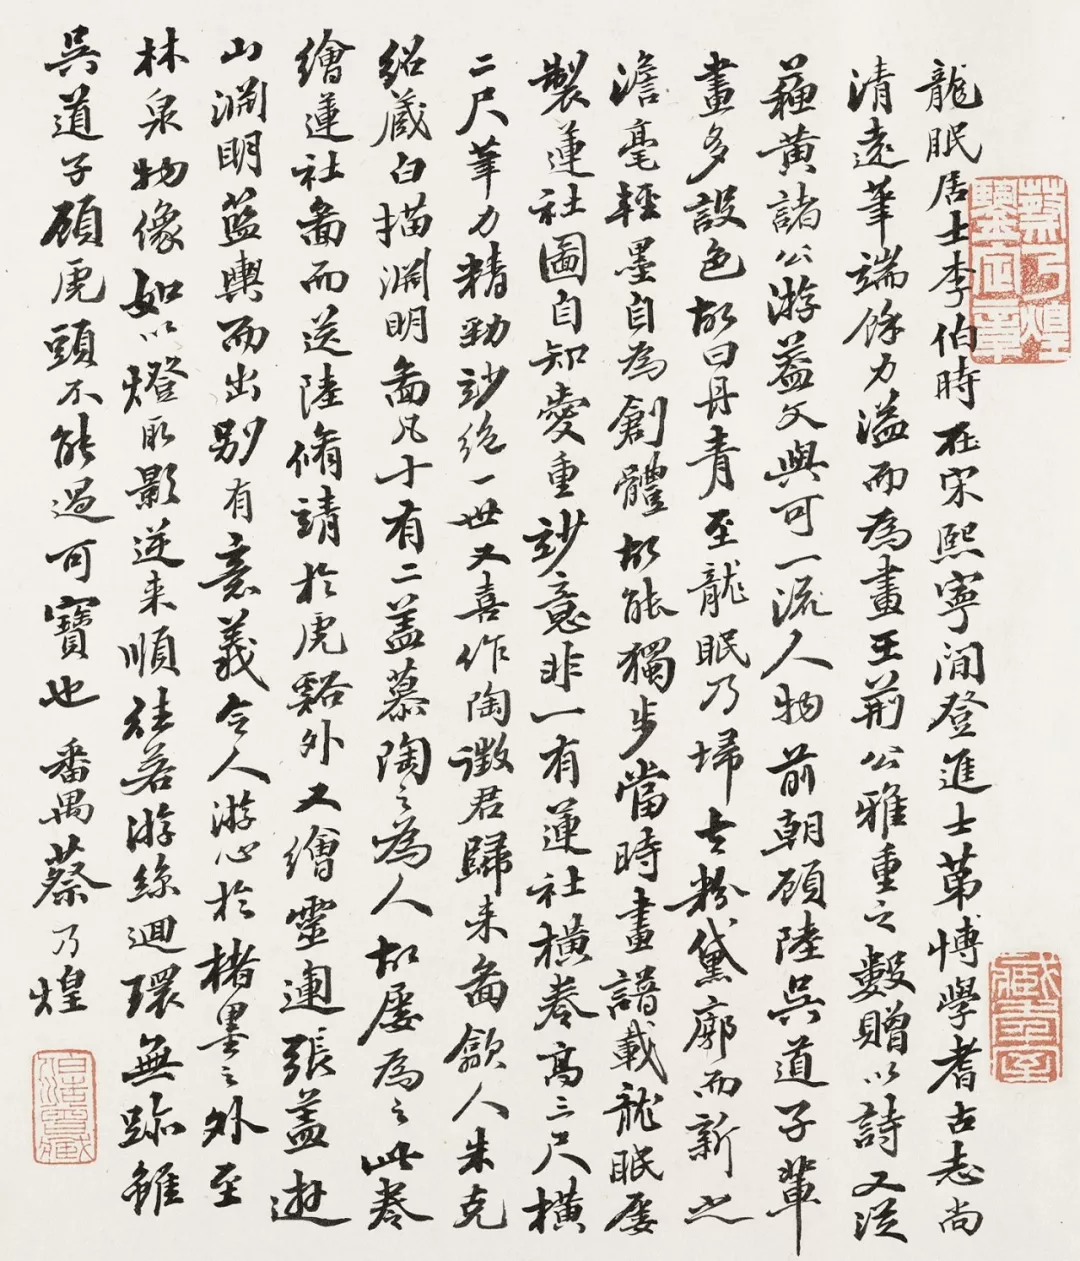 龍眠居士李伯時在宋熙寧間登進士第博學耆古志尚
清遠筆端餘力溢而為畫王荊公雅重之數贈以詩又從
蘓黃諸公游葢文與可一流人物前朝顧陸吳道子輩
畫多設色故曰丹青至龍眠乃埽去粉黛廓而新之
澹毫輕墨自為創體故能獨步當時畫譜載龍眠屡
製蓮社圖自知愛重玅意非一有蓮社橫卷高三尺橫
二尺筆力精勁玅絶一世又喜作陶徵君歸来啚歙人朱克
紹蔵白描淵明啚凡十有二葢慕陶之為人故屡為之此卷
繪蓮社啚而送陸脩靖於虎谿外又繪靈運張葢遊
山淵明藍輿而出别有意義令人游心於楮墨之外至
林泉物像如以燈取影逆来順往若游絲迴環無跡雖
吳道子顧虎頭不能過可寶也 番禺蔡乃煌
蔡乃煌鑒定章
伯浩寶藏